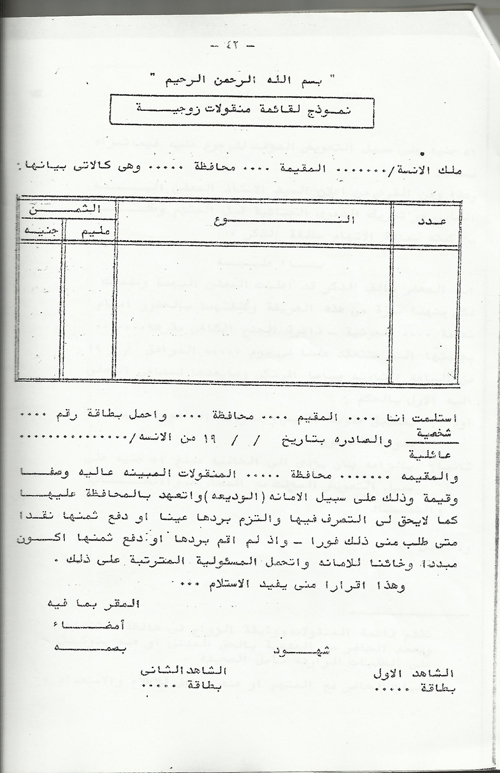 - ٤٢ -
" بسم الله الرحمن الرحيم "
نموذج لقائمة منقولات زوجيـــة
ملك الانسة/....... المقيمة .... محافظة ..... وهى كالاتى بيانها:
عدد النـــوع الثمـــن
مليم جنيه
استلمت أنا .... المقيم .... محافظة .... واحمل بطاقة رقم ....
شخصية والصادره بتاريخ / / ١٩ من الانسه/...............
عائلية
والمقيمه ....... محافظة ..... المنقولات المبينه عاليه وصفــا
وقيمة وذلك على سبيل الامانه (الوديعه) واتعهد بالمحافظة عليهــا
كما لايحق لى التصرف فيها والتزم بردها عينا او دفع ثمنها نقـدا
متى طلب منى ذلك فورا - واذ لم اقم بردها او دفع ثمنها اكـــون
مبددا وخائنا للامانه واتحمل المسئولية المترتبة على ذلك .
وهذا اقرارا منى يفيد الاستلام ...
المقر بما فيه
أمضــاء
شهــود بصمــه
الشاهد الاول الشاهد الثانى
بطاقة ..... بطاقة .....